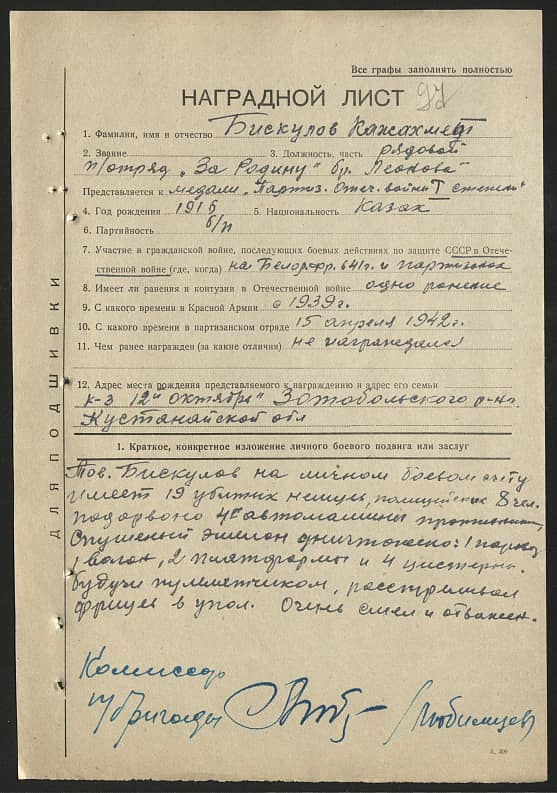 Все графы заполнять полностью
НАГРАДНОЙ ЛИСТ 97
1. Фамилия, имя и отчество Бискулов Кажахмет
2. Звание 3. Должность, часть рядовой
п/отряд „За Родину" бр. Леонова
Представляется к медали „Партиз. Отеч. войны I степени"
4. Год рождения 1916 5. Национальность Казах
6. Партийность б/п
7. Участие в гражданской войне, последующих боевых действиях по защите СССР в Отече-
ственной войне (где, когда) на Белор.фр. в 41 г. и партизанах
8. Имеет ли ранения и контузии в Отечественной войне одно ранение
9. С какого времени в Красной Армии с 1939 г.
10. С какого времени в партизанском отряде 15 апреля 1942 г.
11. Чем ранее награжден (за какие отличия) не награждался
12. Адрес места рождения представляемого к награждению и адрес его семьи
к-з 12 "Октябрь" Затобольского р-на
Кустанайской обл
1. Краткое, конкретное изложение личного боевого подвига или заслуг
Тов. Бискулов на личном боевом счету
имеет 19 убитых немцев, полицейских 8 чел.
подорвано 4е автомашины противника,
Спущеный эшелон уничтожено: 1 паровоз
1 вагон, 2 платформы и 4 цистерны.
будучи пулеметчиком, расстреливал
фрицев в упор. Очень смел и отважен.
Комиссар
п/бригады (Любимцев)
ДЛЯ ПОДШИВКИ